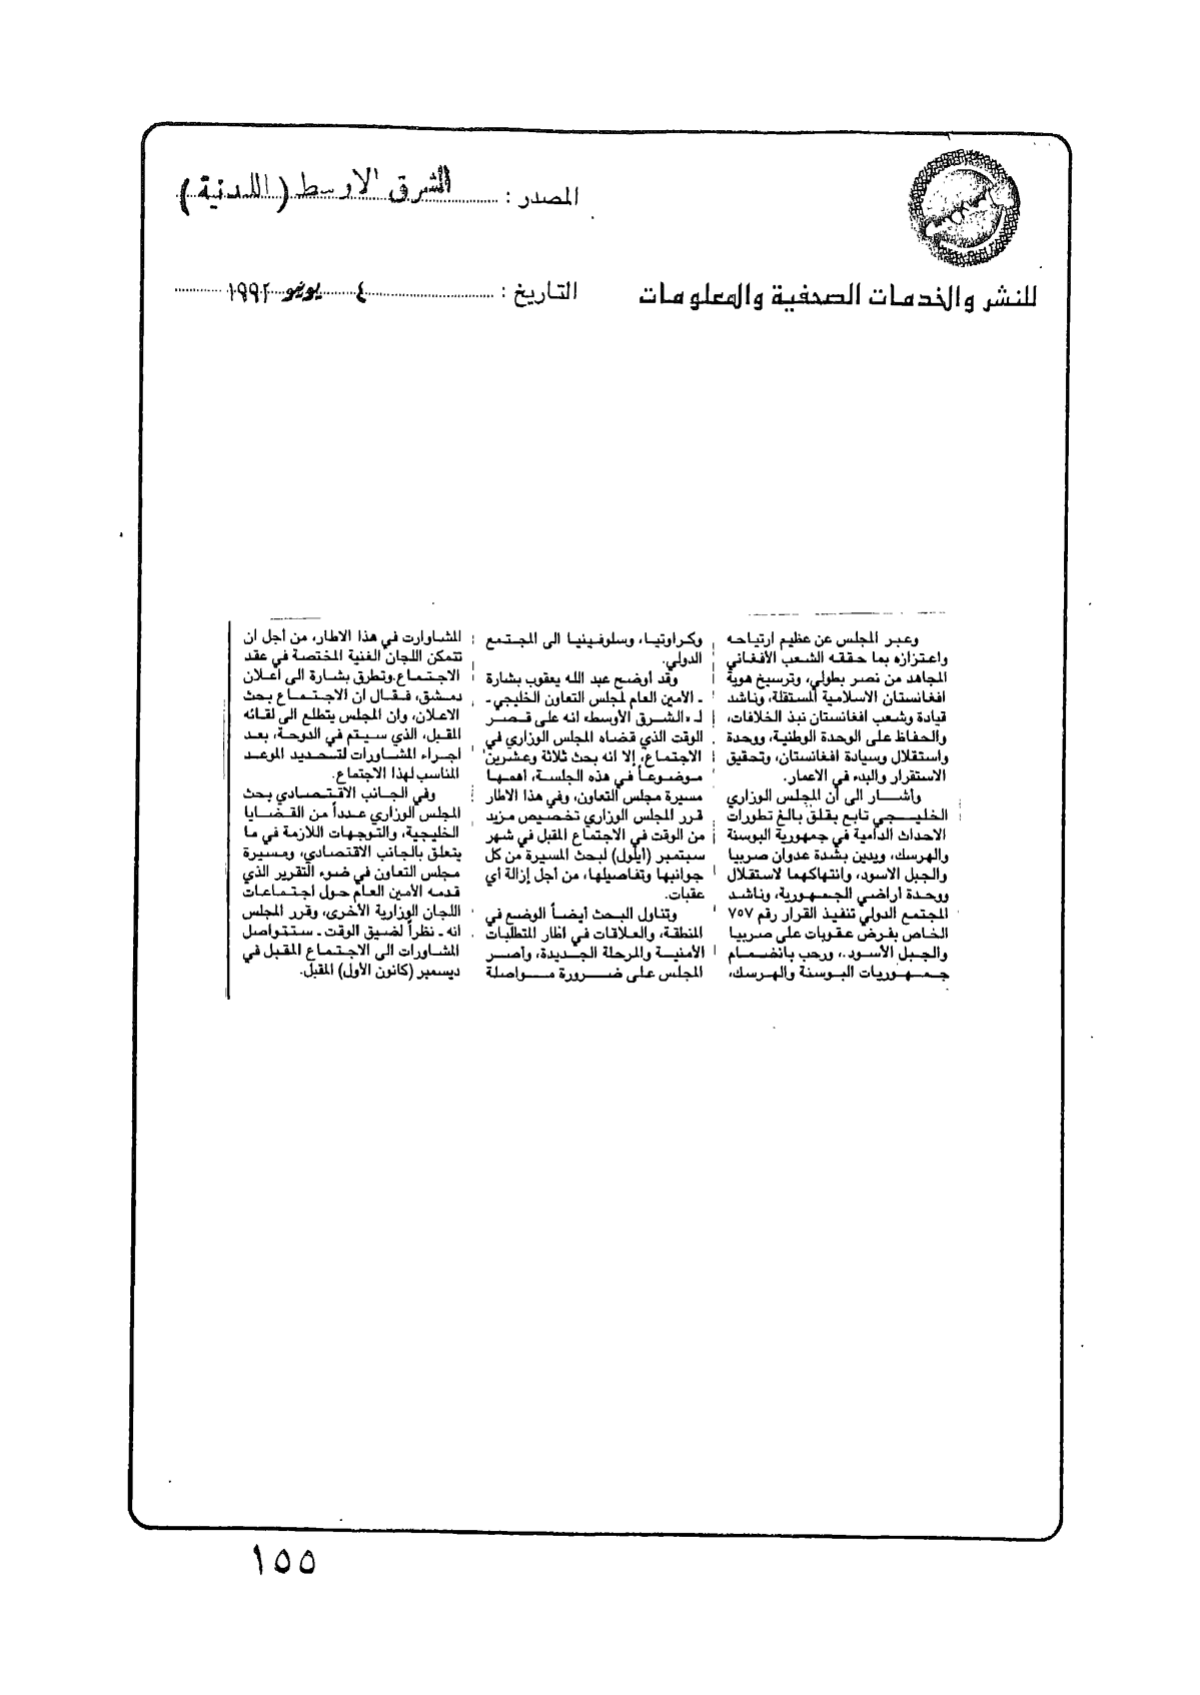 المصدر : الشرق الاوسط (اللندنية)
للنشر والخدمات الصحفية والمعلومات
التاريخ : ٤ يونيو ١٩٩٢
وعبر المجلس عن عظيم ارتياحه
واعتزازه بما حققه الشعب الأفغاني
المجاهد من نصر بطولي، وترسيخ هوية
افغانستان الاسلامية المستقلة، وناشد
قيادة وشعب افغانستان نبذ الخلافات،
والحفاظ على الوحدة الوطنية، ووحدة
واستقلال وسيادة افغانستان، وتحقيق
الاستقرار والبدء في الاعمار.
وأشار الى أن المجلس الوزاري
الخليجي تابع بقلق بالغ تطورات
الاحداث الدامية في جمهورية البوسنة
والهرسك، ويدين بشدة عدوان صربيا
والجبل الاسود، وانتهاكهما لاستقلال
ووحدة أراضي الجمهورية، وناشد
المجتمع الدولي تنفيذ القرار رقم ٧٥٧
الخاص بفرض عقوبات على صربيا
والجبل الأسود.، ورحب بانضمام
جمهوريات البوسنة والهرسك،
وكراوتيا، وسلوفينيا الى المجتمع
الدولي.
وقد أوضح عبد الله يعقوب بشارة
ـ الأمين العام لمجلس التعاون الخليجي ـ
لـ «الشرق الأوسط» انه على قصر
الوقت الذي قضاه المجلس الوزاري في
الاجتماع، إلا انه بحث ثلاثة وعشرين
موضوعاً في هذه الجلسة، أهمها
مسيرة مجلس التعاون، وفي هذا الاطار
قرر المجلس الوزاري تخصيص مزيد
من الوقت في الاجتماع المقبل في شهر
سبتمبر (أيلول) لبحث المسيرة من كل
جوانبها وتفاصيلها، من أجل إزالة أي
عقبات.
وتناول البحث أيضاً الوضع في
المنطقة، والعلاقات في اطار المتطلبات
الأمنية والمرحلة الجديدة، وأصر
المجلس على ضرورة مواصلة
المشاوارت في هذا الاطار، من أجل ان
تتمكن اللجان الفنية المختصة في عقد
الاجتماع.وتطرق بشارة الى أعلان
دمشق، فقال ان الاجتماع بحث
الاعلان، وان المجلس يتطلع الى لقائه
المقبل، الذي سيتم في الدوحة، بعد
اجراء المشاورات لتحديد الموعد
المناسب لهذا الاجتماع.
وفي الجانب الاقتصادي بحث
المجلس الوزاري عدداً من القضايا
الخليجية، والتوجهات اللازمة في ما
يتعلق بالجانب الاقتصادي، ومسيرة
مجلس التعاون في ضوء التقرير الذي
قدمه الأمين العام حول اجتماعات
اللجان الوزارية الأخرى، وقرر المجلس
انه ـ نظراً لضيق الوقت ـ ستتواصل
المشاورات الى الاجتماع المقبل في
ديسمبر (كانون الأول) المقبل.
١٥٥